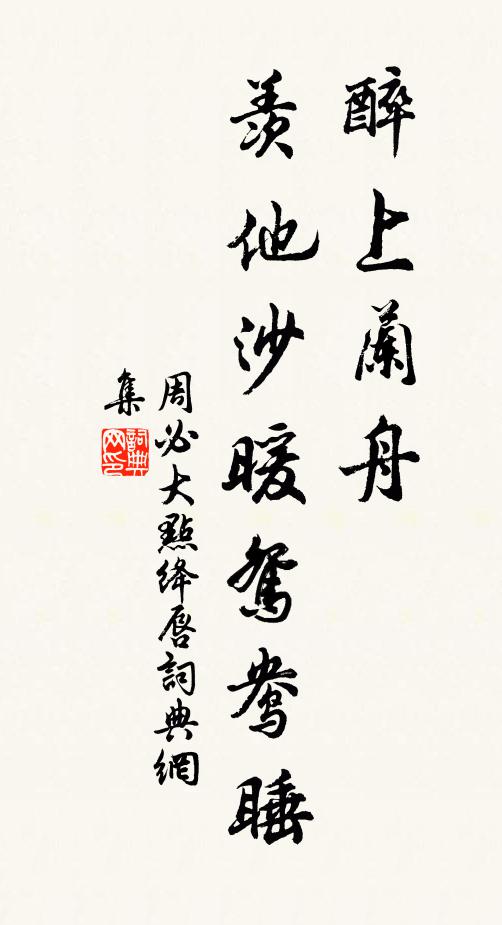 醉上蘭舟
羨他沙暖鴛鴦睡
周必大點絳唇詞典網
集
詞典
网印